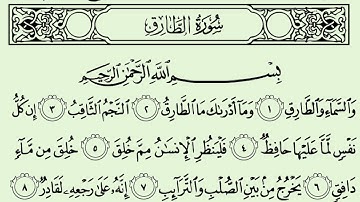 سُورَةُ الطَّارِقِ
بِسْمِ اللَّهِ الرَّحْمَٰنِ الرَّحِيمِ
وَالسَّمَاءِ وَالطَّارِقِ ١ وَمَا أَدْرَىٰكَ مَا الطَّارِقُ ٢ النَّجْمُ الثَّاقِبُ ٣ إِن كُلُّ
نَفْسٍ لَّمَّا عَلَيْهَا حَافِظٌ ٤ فَلْيَنظُرِ الْإِنسَٰنُ مِمَّ خُلِقَ ٥ خُلِقَ مِن مَّاءٍ
دَافِقٍ ٦ يَخْرُجُ مِنۢ بَيْنِ الصُّلْبِ وَالتَّرَائِبِ ٧ إِنَّهُۥ عَلَىٰ رَجْعِهِۦ لَقَادِرٌ ٨